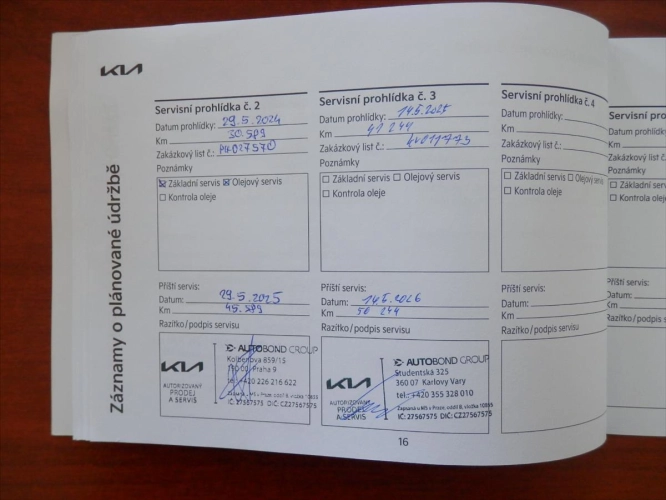 KIA
Záznamy o plánované údržbě
Servisní prohlídka č. 2
Datum prohlídky: 29.5.2024
Km 30 589
Zakázkový list č.:
Poznámky
☒ Základní servis ☒ Olejový servis
☐ Kontrola oleje
Příští servis:
Datum: 29.5.2025
Km 45.589
Razítko/podpis servisu
KIA
AUTORIZOVANÝ
PRODEJ
A SERVIS
AUTOBOND GROUP
Kolbenova 859/15
Praha 9
tel.: +420 226 216 622
Zapsaná u MS v Praze, oddíl B, vložka 10855
IČ: 27567575 DIČ: CZ27567575
Servisní prohlídka č. 3
Datum prohlídky: 14.5.2025
Km 41 244
Zakázkový list č.:
Poznámky
☐ Základní servis ☐ Olejový servis
☐ Kontrola oleje
Příští servis:
Datum: 14.5.2026
Km 56 244
Razítko/podpis servisu
KIA
AUTORIZOVANÝ
PRODEJ
A SERVIS
AUTOBOND GROUP
Studentská 325
360 07 Karlovy Vary
tel.: +420 355 328 010
Zapsaná u MS v Praze, oddíl B, vložka 10855
IČ: 27567575 DIČ: CZ27567575
Servisní prohlídka č. 4
Datum prohlídky:
Km
Zakázkový list č.:
Poznámky
☐ Základní servis ☐ Olejový servis
☐ Kontrola oleje
Příští servis:
Datum:
Km
Razítko/podpis servisu
Servisní pro
Datum prohl
Km
Zakázkový li
Poznámky
☐ Základní
☐ Kontrola
Příští servis:
Datum:
Km
Razítko/pod
16